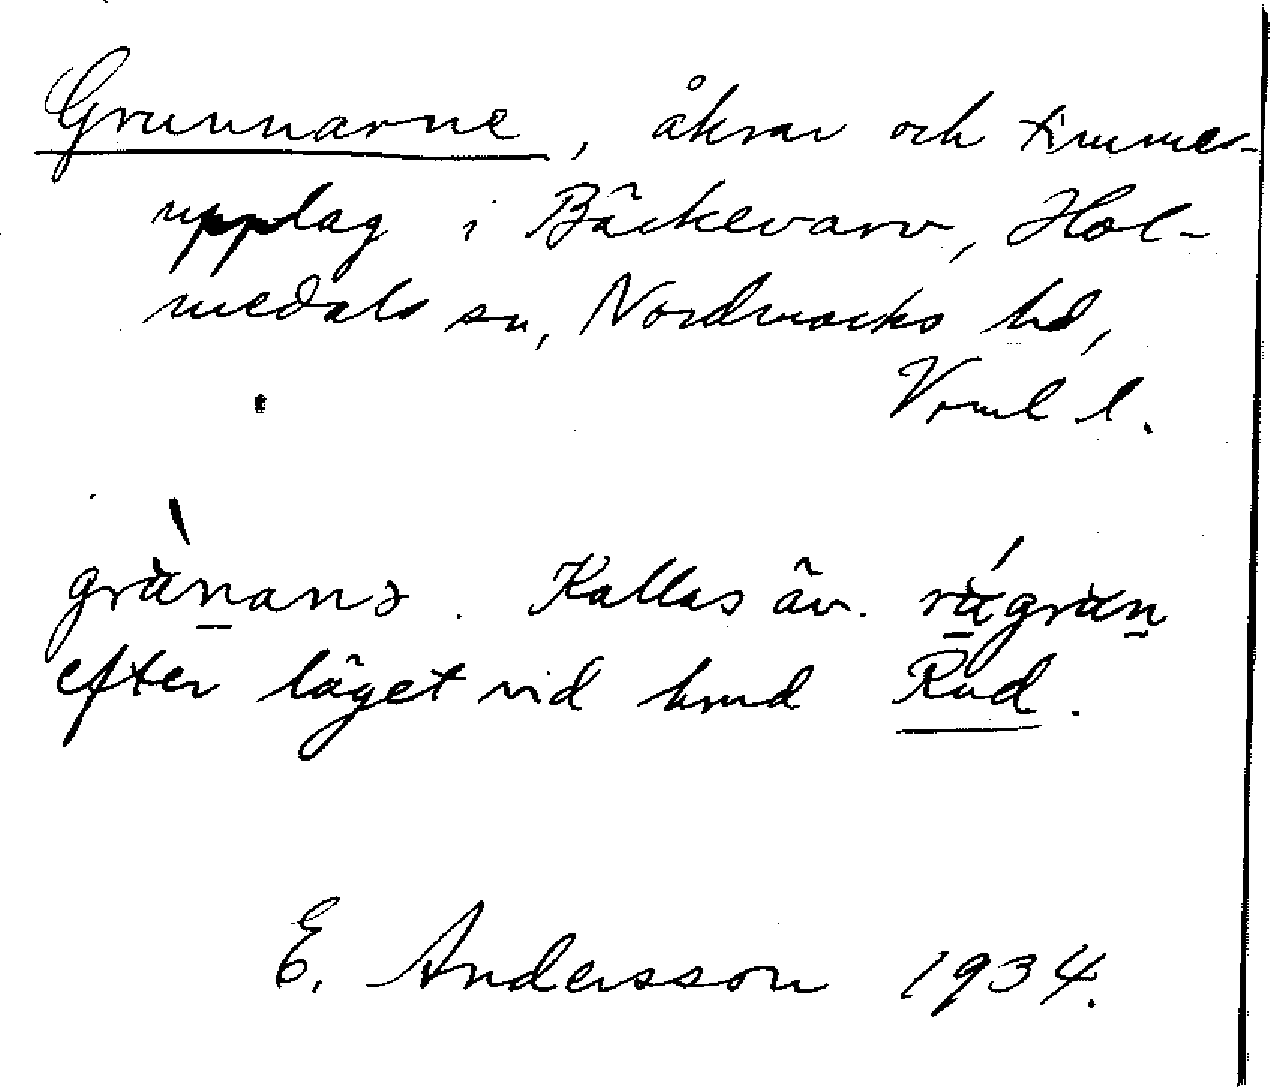 Grunnarne, åkrar och timmer-
upplag i Bäckevarv, Hol-
medals sn, Nordmarks hd,
Vrml l.
Kallas äv.
efter läget vid hmd Rud.
E. Andersson 1934.